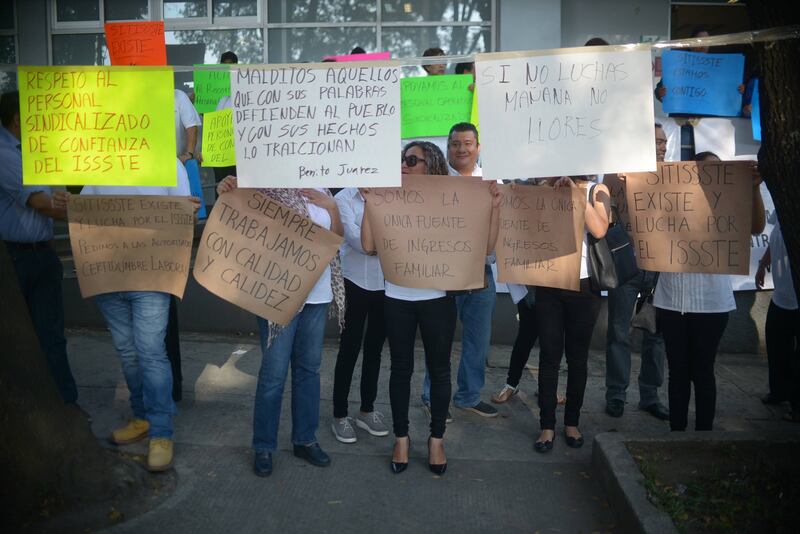 SITISSSTE
EXISTE
RESPETO AL
PERSONAL
SINDICALIZADO
DE CONFIANZA
DEL ISSSTE
MALDITOS AQUELLOS
QUE CON SUS PALABRAS
DEFIENDEN AL PUEBLO
Y CON SUS HECHOS
LO TRAICIONAN
Benito Juarez
APOYAMOS AL
PERSONAL
SI NO LUCHAS
MAÑANA NO
LLORES
SITISSSTE
ESTAMOS
CONTIGO
SITISSSTE EXISTE Y
LUCHA POR EL ISSSTE
PEDIMOS A LAS AUTORIDADES
CERTIDUMBRE LABORAL
SIEMPRE
TRABAJAMOS
CON CALIDAD
Y CALIDEZ
SOMOS LA
ÚNICA FUENTE
DE INGRESOS
FAMILIAR
SOMOS LA ÚNICA
FUENTE DE
INGRESOS
FAMILIAR
SITISSSTE
EXISTE Y
LUCHA POR
EL ISSSTE